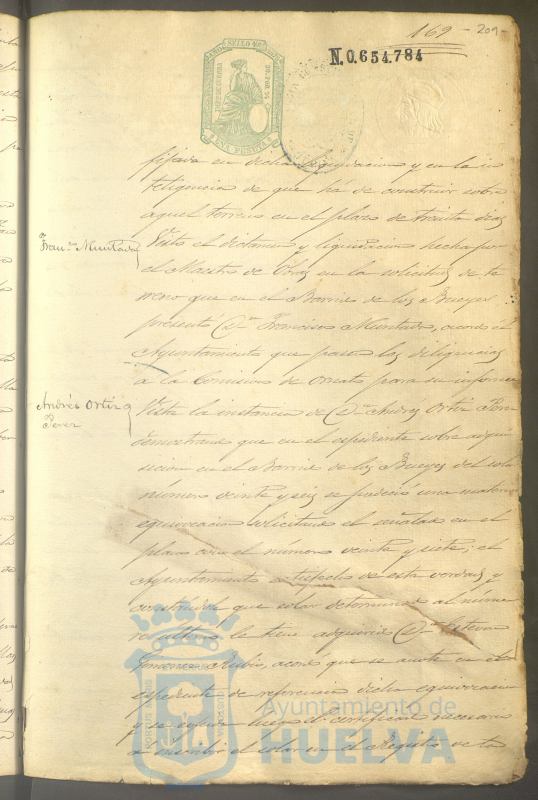 169 - 209-
SELLO
UNA PESETA
N.0.654.784
en dicha y en la in
teligencia de que ha de construir sobre
aquel terreno en el plazo de treinta dias
Fran.co Muntada
Visto el dictamen y liquidacion hecha por
el Maestro de Obras en la solicitud de te
rreno que en el Barrio de los Bueyes
presentó D.n Francisco Muntada, acordó el
Ayuntamiento que pasen las diligencias
a la Comision de ornato para su informe
Andrés Ortiz
Perez
Vista la instancia de D.n Andrés Ortiz
demostrando que en el espediente sobre adqui
sicion en el Barrio de los Bueyes del solar
número veinte y seis se padeció una
equivocacion solicitando el señalado en el
plano con el número veinte y siete; el
Ayuntamiento satisfecho de esta verdad y
que solar determinado al número
le tiene adquirido D.n
Rubio, acordó que se anote en el
espediente de referencia dicha equivocacion
y se espida luego el certificado necesario
a inscribir el solar en el Registro de la
Ayuntamiento de
HUELVA